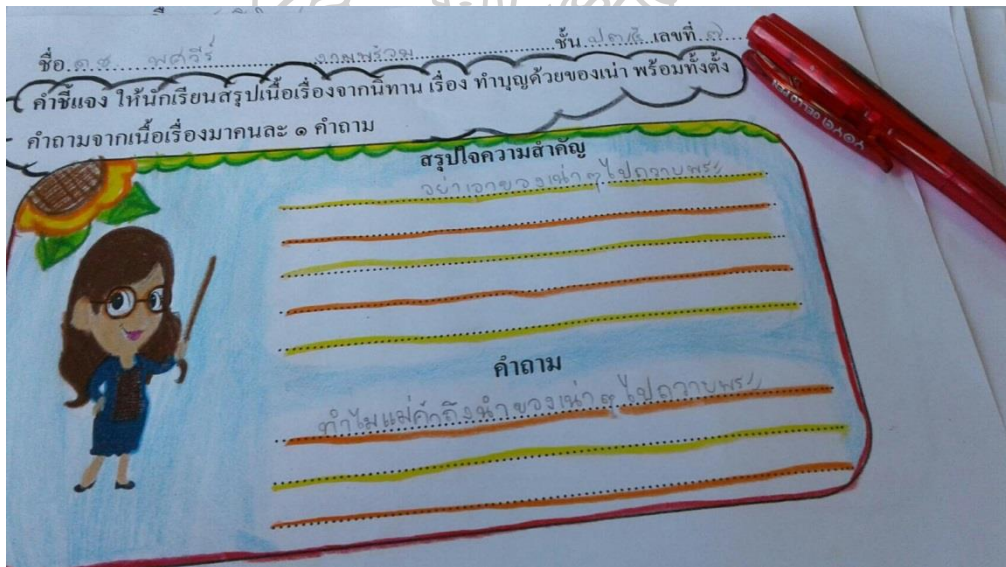 ชื่อ ด.ช. พศวีร์ งามพร้อม ชั้น ป.๓/๕ เลขที่ ๗
คำชี้แจง ให้นักเรียนสรุปเนื้อเรื่องจากนิทาน เรื่อง ทำบุญด้วยของเน่า พร้อมทั้งตั้ง
คำถามจากเนื้อเรื่องมาคนละ ๑ คำถาม
สรุปใจความสำคัญ
อย่าเอาของเน่าๆ ไปถวายพระ
คำถาม
ทำไมแม่ค้าถึงนำของเน่าๆ ไปถวายพระ